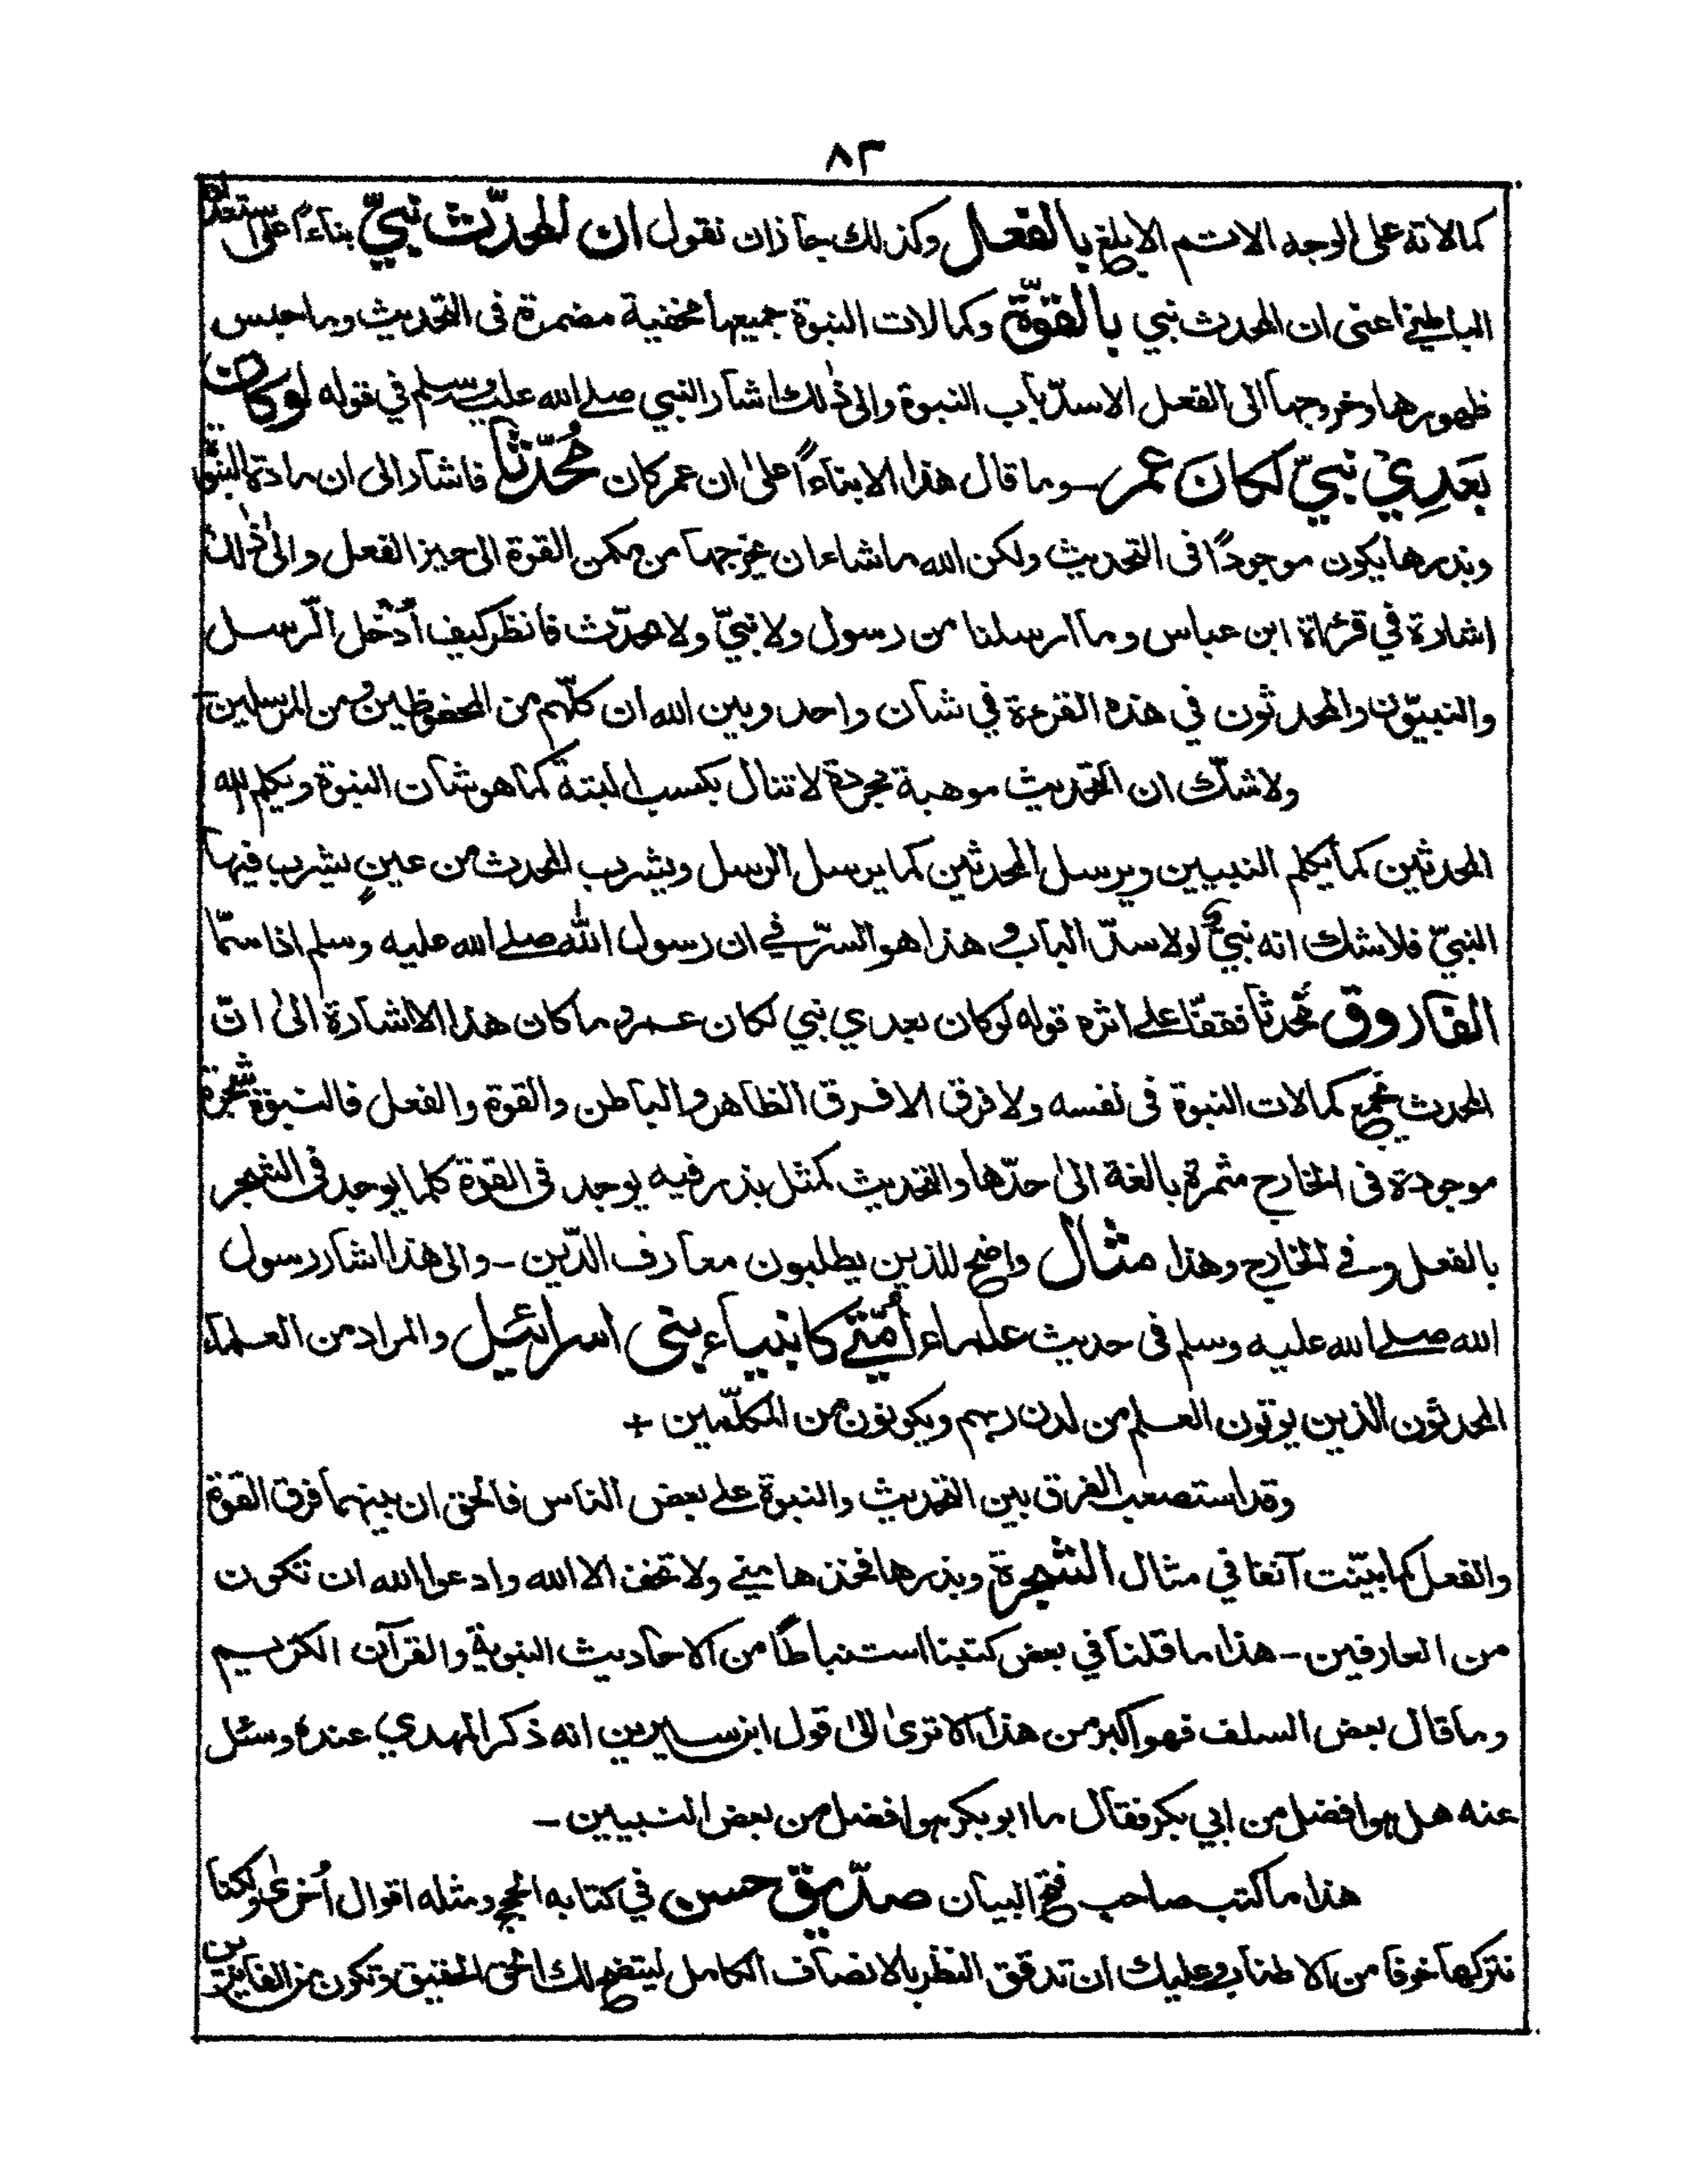 ٨٢
كمالاته على الوجه الاتم الابلغ بالفعل وكذلك جاز ان نقول ان المحدّث نبيّ بناءً على استعداده
الباطني اعنى ان المحدث نبي بالقوّة وكمالات النبوة جميعها مخفية مضمرة فى التحديث وما حبس
ظهورها وخروجها الى الفعل الا سدّ باب النبوة والى ذٰلك اشار النبي صلے الله عليه وسلم في قوله لو كان
بَعَدِيْ نبيّ لكانَ عمر - وما قال هذا الا بناءاً علىٰ ان عمر كان مُحَدَّثًا فاشار الى ان مادة النبوّة
وبذرها يكون موجودًا فى التحديث ولكن الله ما شاء ان يخرجها من مكمن القوة الى حيز الفعل والىٰ ذٰلك
اشارة في قرءاة ابن عباس وما ارسلنا من رسول ولا نبيّ ولا محدّث فانظر كيف اُدْخل الرّسل
والنبيّون والمحدثون في هذه القرءة في شان واحد وبين الله ان كلّهم من المحفوظين ومن المرسلين
ولا شكّ ان التحديث موهبة مجردة لا تنال بكسب البتة كما هو شان النبوة ويكلم الله
المحدثين كما يكلم النبيين ويرسل المحدثين كما يرسل الرسل ويشرب المحدث من عينٍ يشرب فيها
النبيّ فلا شك انه نبيّ لو لا سدّ الباب و هذا هو السرّ في ان رسول اللّٰه صلے الله عليه وسلم اذا سمّا
الفاروق مُحدثًا فقفّا علے اثره قوله لو كان بعدي نبي لكان عمر و ما كان هذا الا اشارة الىٰ انّ
المحدث يجمع كمالات النبوة فى نفسه ولا فرق الا فرق الظاهر و الباطن والقوة والفعل فالنبوّة شجرة
موجودة فى الخارج مثمرة بالغة الىٰ حدّها والتحديث كمثل بذر فيه يوجد فى القوة كلما يوجد فى الشجر
بالفعل وفے الخارج وهذا مثال واضح للذين يطلبون معارف الدّين - والى هذا اشار رسول
الله صلے الله عليه وسلم فى حديث علماء اُمّتے كانبياء بنى اسرائيل والمراد من العلماء
المحدثون الذين يوتون العلم من لدن ربهم ويكونون من المكلّمين +
وقد استصعب الفرق بين التحديث والنبوة علے بعض الناس فالحق ان بينهما فرق القوة
والفعل كما بيّنت آنفا في مثال الشجرة وبذرها فخذها منے ولا تخف الا الله وادعوا الله ان تكون
من العارفين - هذا ما قلنا في بعض كتبنا استنباطًا من الاحاديث النبوية والقرآن الكريم
وما قال بعض السلف فهو اكبر من هذا الا ترىٰ الىٰ قول ابن سيرين انه ذكر المهدي عنده وسئل
عنه هل هو افضل من ابي بكر فقال ما ابو بكر هو افضل من بعض النبيين -
هذا ما كتب صاحب فتح البيان صدّيق حسن في كتابه الحجج ومثله اقوال اُخرىٰ ولكنا
نتركها خوفا من الاطناب وعليك ان تدقق النظر بالانصاف الكامل ليتضح لك الحق الحقيق وتكون من الفائزين